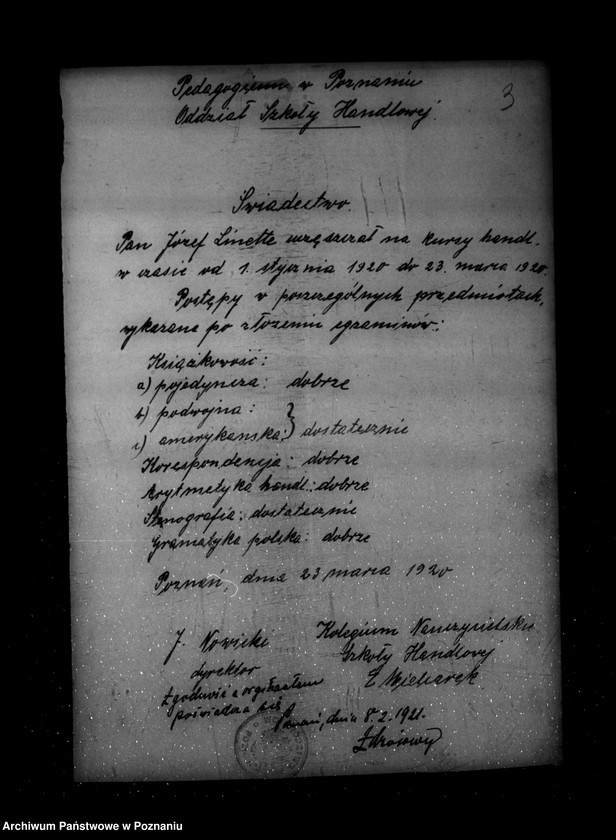 Pedagogjum w Poznaniu
3
Oddział Szkoły Handlowej.
Świadectwo.
Pan Józef Linette uczęszczał na kursy handl.
w czasie od 1. stycznia 1920 do 23. marca 1920.
Postępy w poszczególnych przedmiotach,
wykazane po złożeniu egzaminów:
Książkowość:
a) pojedyncza: dobrze
b) podwojna:
c) amerykańska: } dostatecznie
Korespondencja: dobrze
Arytmetyka handl.: dobrze
Stenografia: dostatecznie
Gramatyka polska: dobrze
Poznań, dnia 23 marca 1920
J. Nowicki
dyrektor
Kolegium Nauczycielskie
Szkoły Handlowej
Zgodność z orginałem
poświadcza się
Poznań, dnia 8.2.1921.
Archiwum Państwowe w Poznaniu